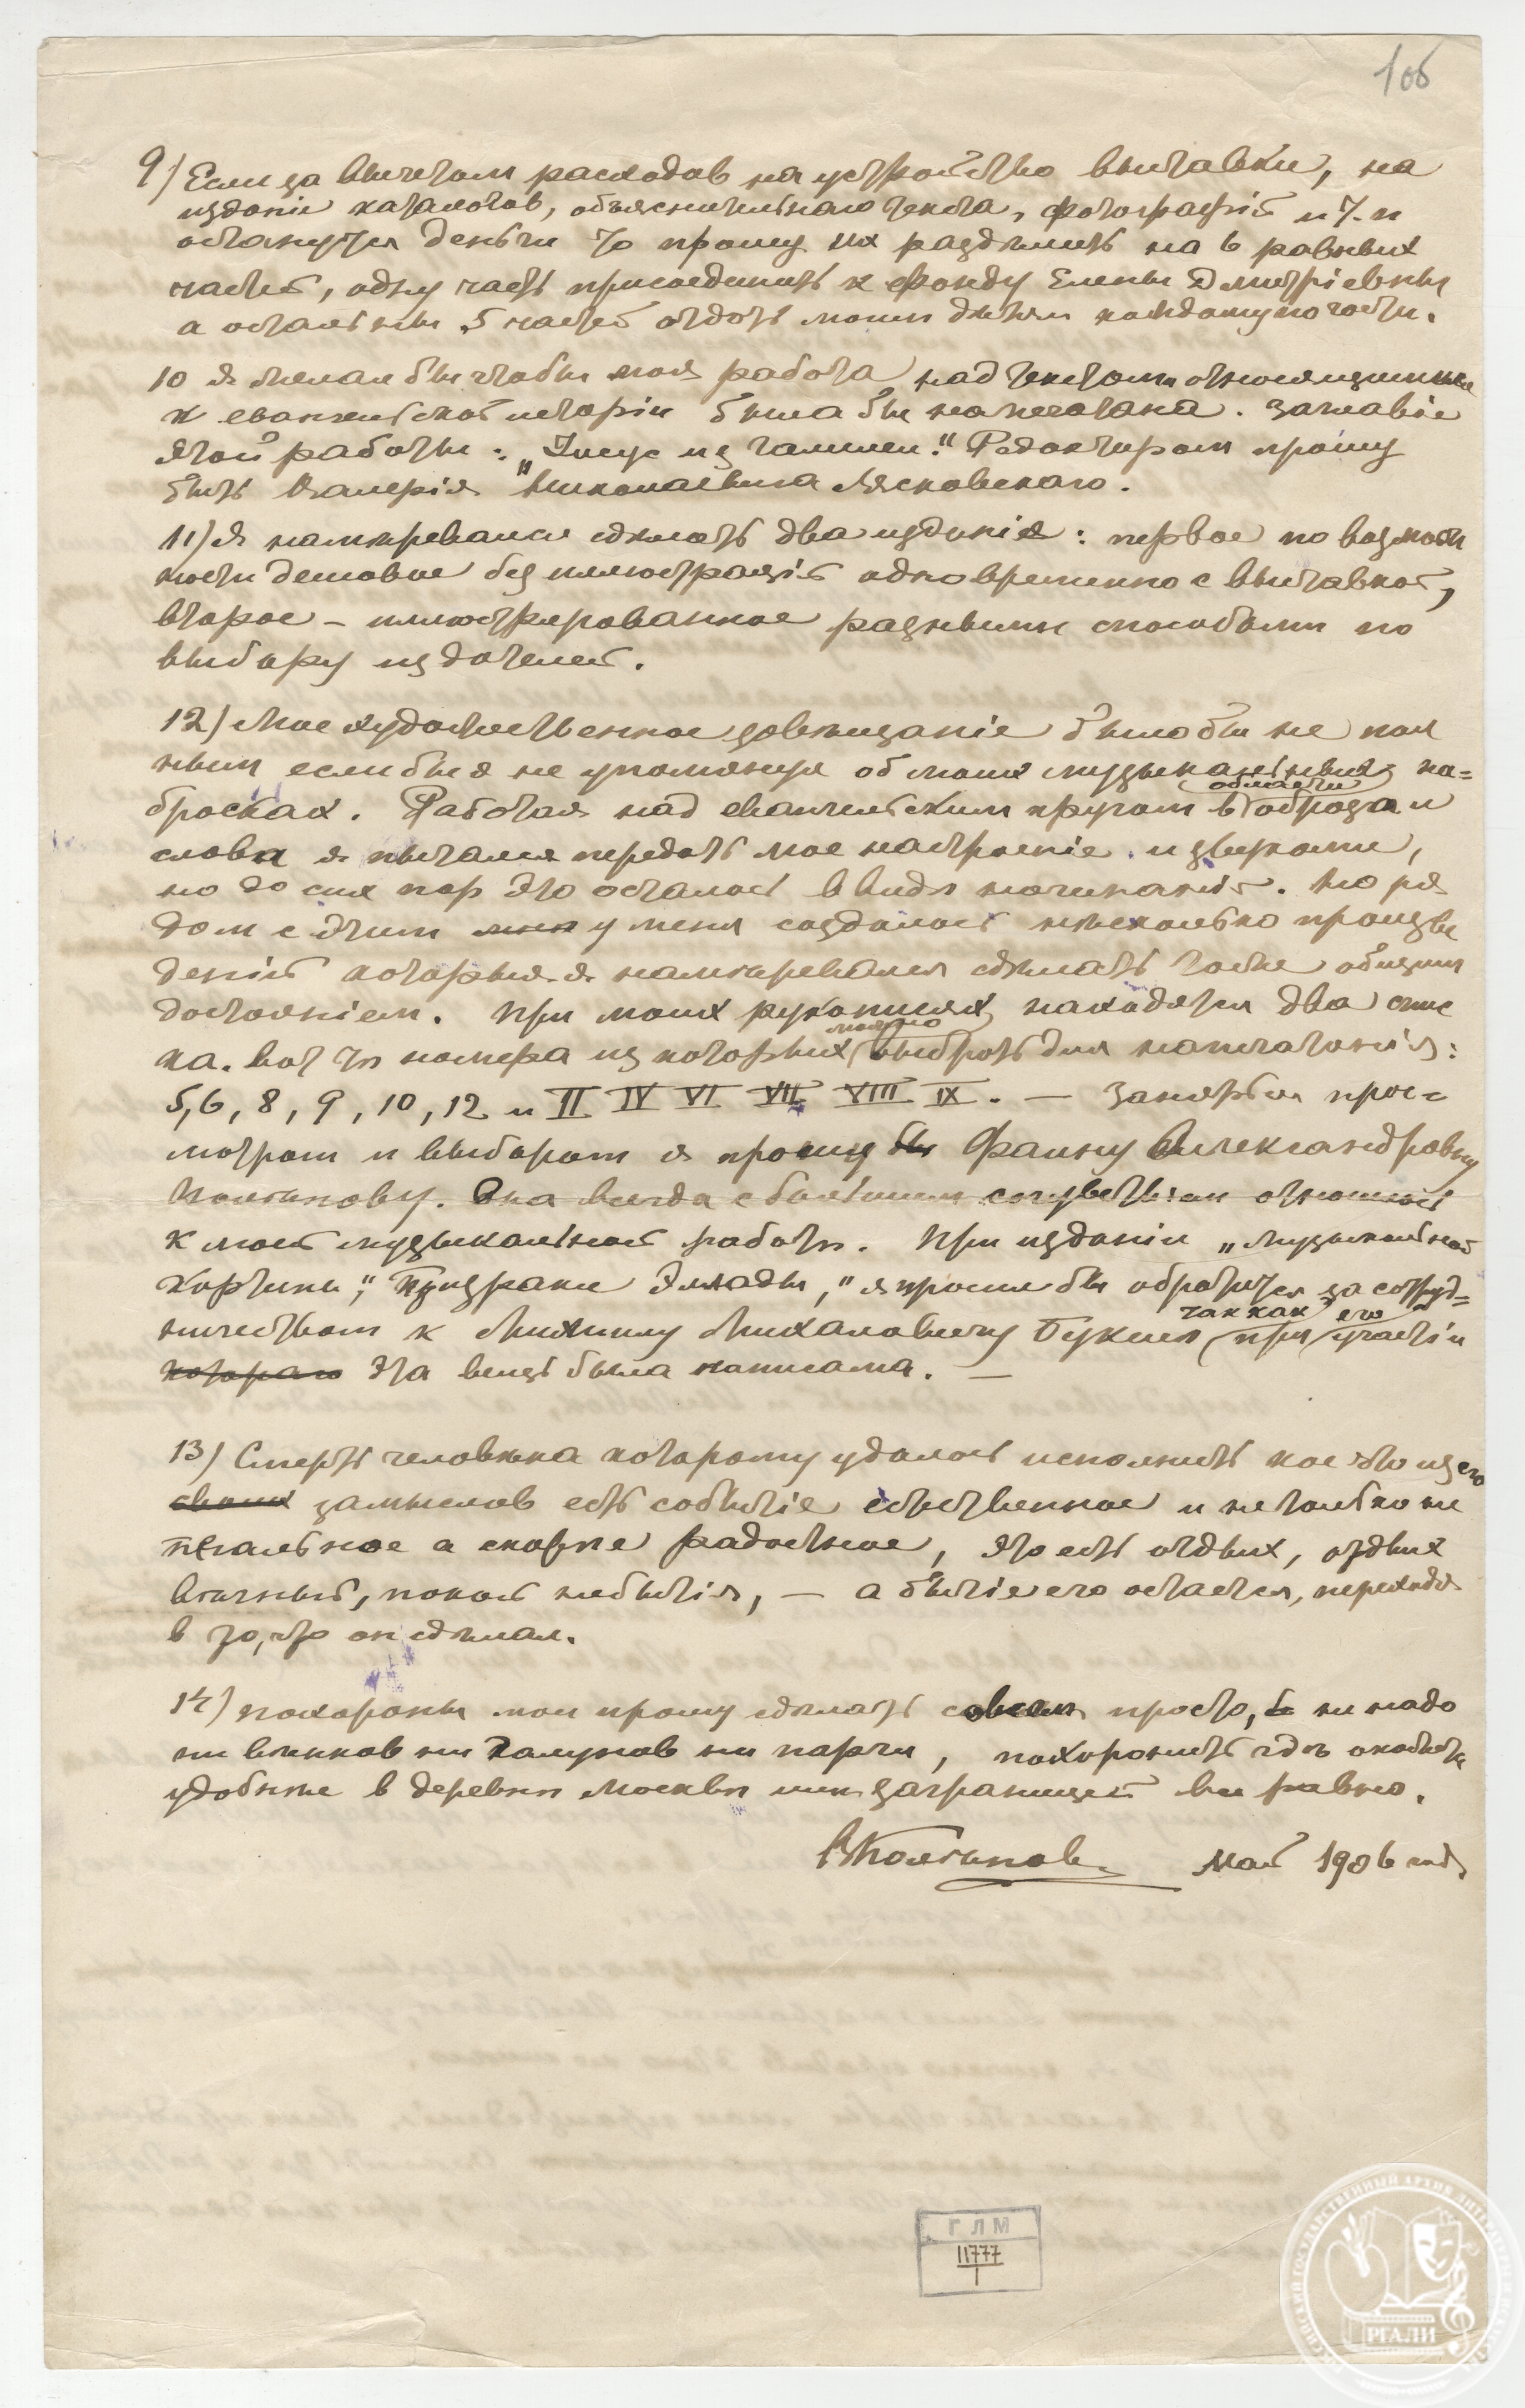 1об
9) Если за вычетом расходов на устройство выставки, на
изданiе каталогов, объяснительнаго текста, фотографiй и т.п
останутся деньги то прошу их раздѣлить на 6 равных
частей, одну часть присоединить к фонду Елены Дмитрiевны
а остальныя 5 частей отдать моим дѣтям каждому по части.
10 Я желал бы чтобы моя работа над текстами относящимися
к евангельской исторiи была бы напечатана. Заглавiе
этой работы: „Iисус из Галилеи." Редактором прошу
быть Валерiя Николаевича Лясковскаго.
11) Я намѣревался сдѣлать два изданiя: первое по возмож
ности дешовое без иллюстрацiй одновременно с выставкой,
второе – иллюстрированное разными способами по
выбору издателей.
12) Мое художественное завѣщанiе было бы не пол
ным если бы я не упомянул об моих музыкальных на=
бросках. Работая над евангельским кругом в области образа и
слова я пытался передать мое настроенiе и звуками,
но до сих пор это осталось в видѣ начинанiй. Но ря
дом с этим у меня создалось нѣсколько произве
денiй которыя я намѣревался сдѣлать тоже общим
достоянiем. При моих рукописях находятся два спис
ка. Вот тѣ номера из которых можно выбрать для напечатанiя:
5, 6, 8, 9, 10, 12 и II IV VI VII VIII IX. — Заняться прос=
мотром и выбором я прошу бы Фаину Александровну
Поленову. Она всегда с большим сочувствiем относилась
к моей музыкальной работѣ. При изданiи „музыкальной
картины", "Призраки Эллады," я просил бы обратится за сотруд=
ничеством к Михаилу Михаловичу Букше так как при его участiи
котораго эта вещь была написана. —
13) Смерть человѣка которому удалось исполнить кое что из его
своих замыслов есть событiе естественное и не только не
печальное а скорѣе радостное, это есть отдых, отдых
вѣчный, покой небытiя, — а бытiе его остается, переходя
в то, что он сдѣлал.
14) Похороны мои прошу сдѣлать совсем просто, не надо
ни вѣнков ни галунов ни парчи, похоронить гдѣ окажется
удобнѣе в деревнѣ Москвѣ или заграницей все равно.
ВПоленов май 1906 года
ГЛМ
11777
1
РОССИЙСКИЙ ГОСУДАРСТВЕННЫЙ АРХИВ ЛИТЕРАТУРЫ И ИСКУССТВА
РГАЛИ